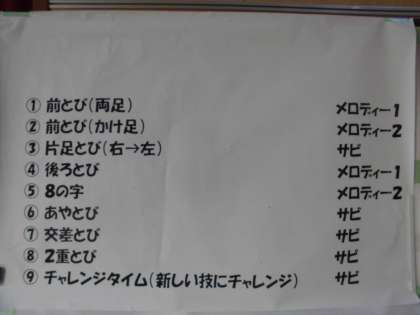 ① 前とび(両足) メロディー1
② 前とび(かけ足) メロディー2
③ 片足とび(右→左) サビ
④ 後ろとび メロディー1
⑤ 8の字 メロディー2
⑥ あやとび サビ
⑦ 交差とび サビ
⑧ 2重とび サビ
⑨ チャレンジタイム(新しい技にチャレンジ) サビ